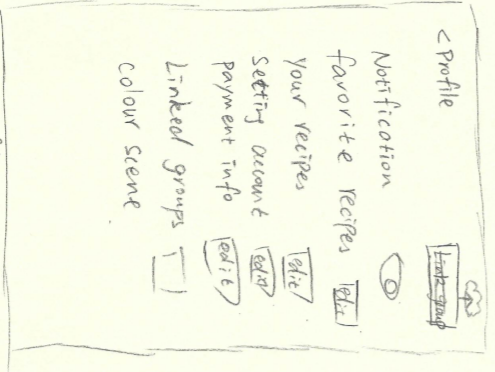 < Profile
Link group
Notification
favorite recipes edit
Your recipes edit
Setting account edit
payment info edit
Linked groups
colour scene